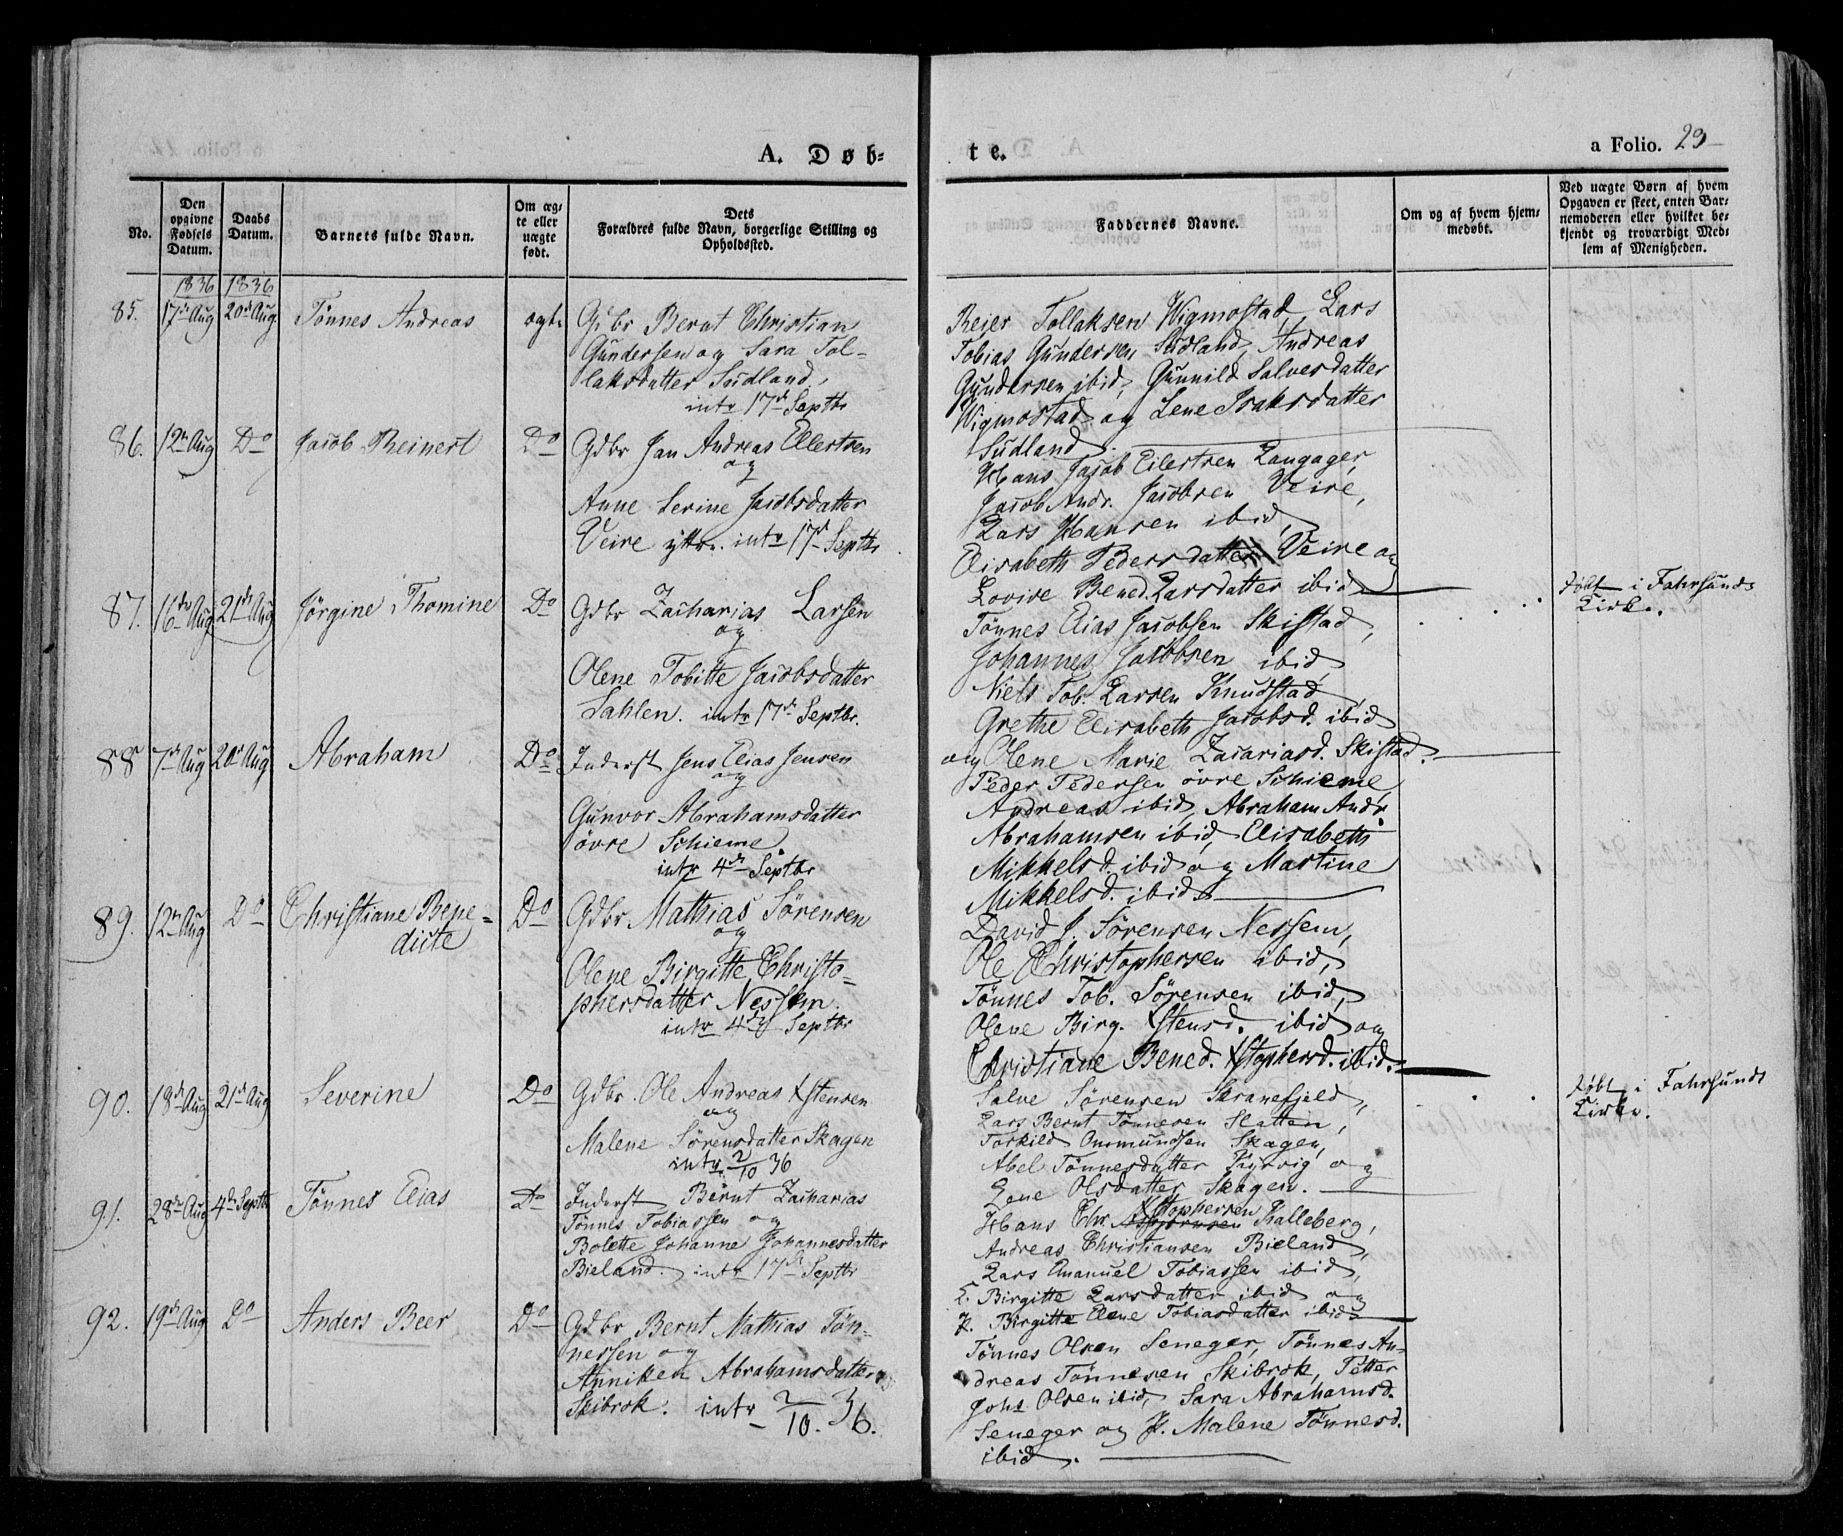 A. Døb-
te.
a Folio. 23
No.
Den opgivne Fødsels Datum.
Daabs Datum.
Barnets fulde Navn.
Om ægte eller uægte født.
Dets Forældres fulde Navn, borgerlige Stilling og Opholdssted.
Faddernes Navne.
Om og af hvem hjemmedøbt.
Ved uægte Børn af hvem Opgaven er skeet, enten Barnemoderen eller hvilket bekjendt og troværdigt Medlem af Menigheden.
1836 1836
85. 17de Aug 20de Aug. Tönnes Andreas ægte Gdbr Bernt Christian
Gundersen og Sara Tol-
laksdatter Sudland,
intr 17de Septbr
Reier Tollaksen Wigmostad, Lars
Tobias Gundersen Sudland, Andreas
Gundersen ibid, Gunnild Salvesdatter
Wigmostad og Lene Isaksdatter
Sudland.
86. 12te Aug Do Jacob Reinert Do Gdbr Jan Andreas Eilertsen
og
Anne Serine Jacobsdatter
Veire yttre. intr 17de Septbr
Hans Jacob Eilertsen Langager,
Jacob Andr. Jacobsen Veire,
Lars Hansen ibid,
Elisabeth Pedersdatter Veire og
Lovise Bened. Larsdatter ibid
87. 16de Aug 21de Aug Jörgine Thomine Do Gdbr Zacharias Larsen
og
Olene Tobitte Jacobsdatter
Sahlen. intr 17de Septbr.
Tönnes Elias Jacobsen Skistad,
Johannes Jacobsen ibid,
Niels Tob. Larsen Knudstad,
Grethe Elisabeth Jacobsd. ibid
og Olene Marie Zacariasd. Skistad.
döbt i Fahrsunds
Kirke.
88 7de Aug 20de Aug Abraham Do Inderst Jens Elias Jensen
og
Gunvor Abrahamsdatter
övre Schieme.
intr 4de Septbr
Peder Pedersen övre Schieme,
Andreas ibid, Abraham Andr.
Abrahamsen ibid, Elisabeth
Mikkelsd. ibid og Martine
Mikkelsd. ibid
89. 12te Aug Do Christiane Bene-
dicte Do Gdbr Mathias Sörensen
og
Olene Birgitte Christo-
phersdatter Nessem.
intr 4de Septbr
David J. Sörensen Nessem,
Ole Christophersen ibid,
Tönnes Tob. Sörensen ibid,
Olene Birg. Xstensd. ibid og
Christiane Bened. Xstophersd. ibid.
90. 18de Aug 21de Aug Severine Do Gdbr Ole Andreas Xstensen
og
Malene Sörensdatter Skagen
intr 2/10 36
Salve Sörensen Skranefjeld,
Lars Bernt Tönnesen Slatten,
Torkild Omundsen Skagen,
Abel Tönnesdatter Kirvig og
Lene Olsdatter Skagen.
döbt i Fahrsunds
Kirke.
91. 28de Aug 4de Septbr Tönnes Elias Do Inderst Bernt Zacharias
Tönnes Tobiassen og
Bolette Johanne Johannesdatter
Bieland. intr 17de Septbr
Xstophersen
Hans Chr. Kalleberg,
Andreas Christiansen Bieland,
Lars Emanuel Tobiassen ibid,
E. Birgitte Larsdatter ibid og
K. Birgitte Elene Tobiasdatter ibid
92. 19de Aug Do Anders Beer Do Gdbr Bernt Mathias Tön-
nessen og
Anniken Abrahamsdatter
Skibrok. intr 2/10. 36.
Tönnes Olsen Seneger, Tönnes An-
dreas Tönnesen Skibrok, Petter
Johs Olsen ibid, Sara Abrahamsd.
Seneger og K. Malene Tönnesd.
ibid.